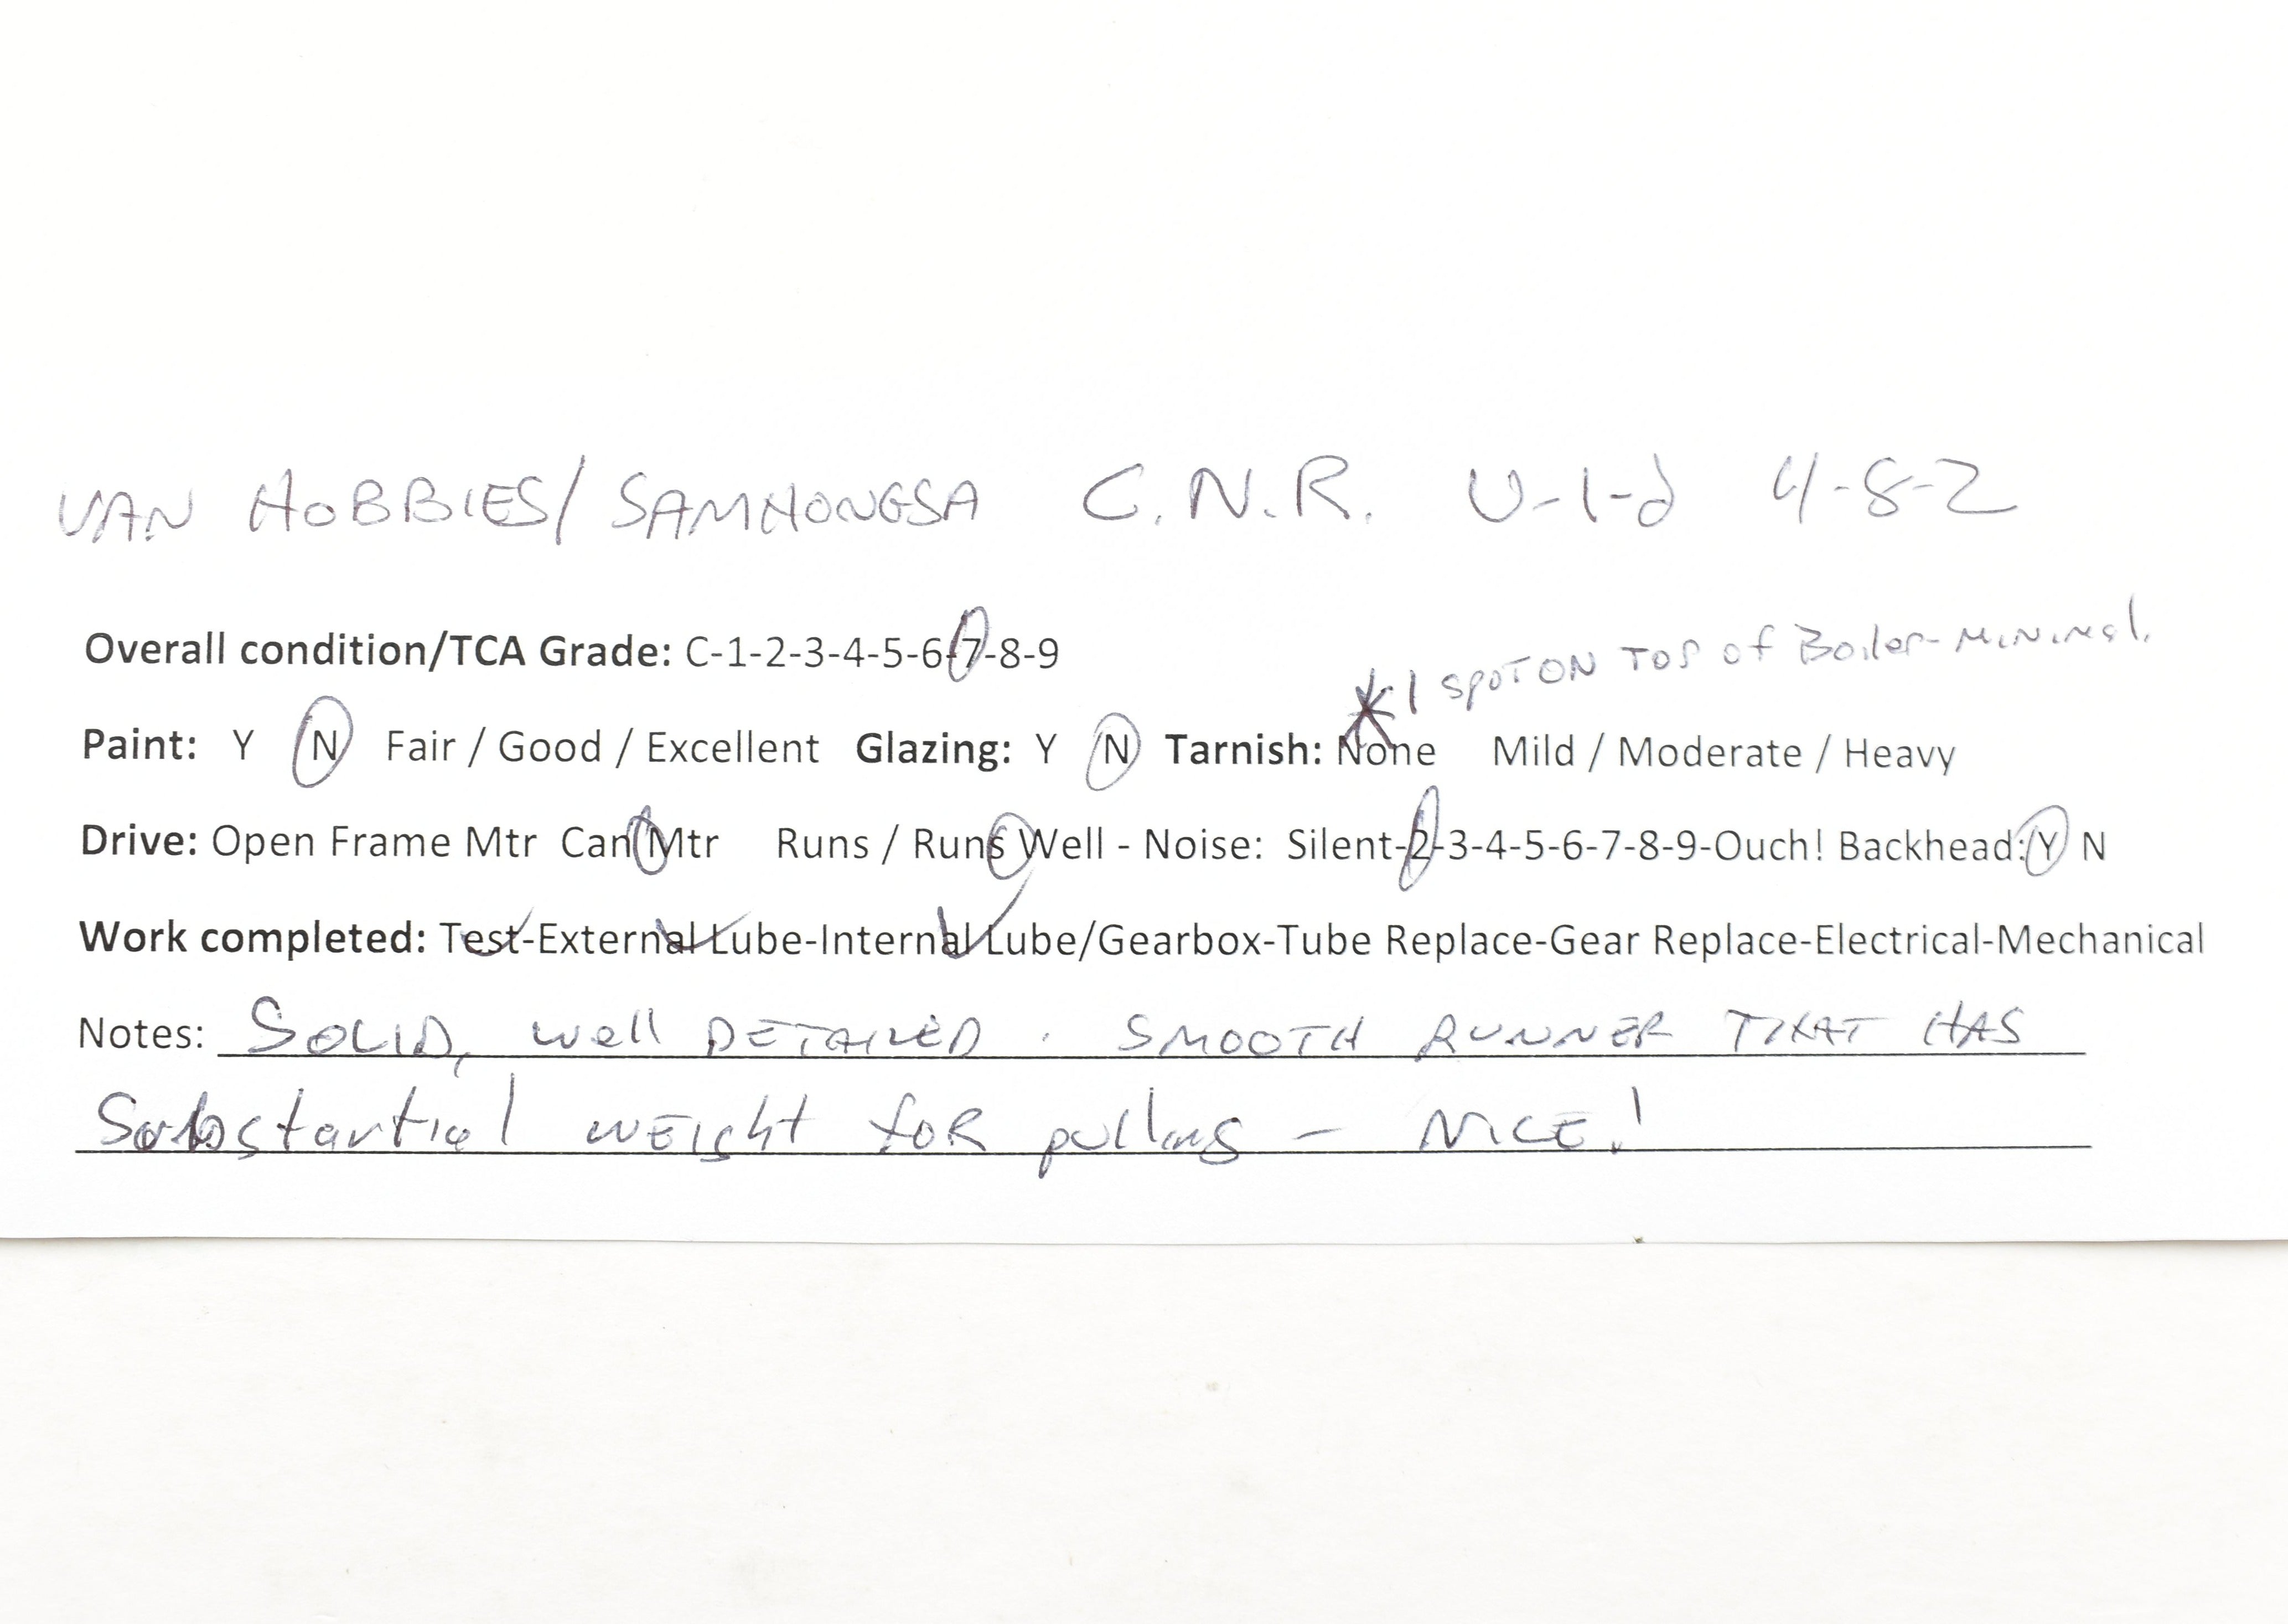 VAN HOBBIES/SAMHONGSA C.N.R. U-1-d 4-8-2
Overall condition/TCA Grade: C-1-2-3-4-5-6-7-8-9
*1 SPOT ON TOP of Boiler-MiNiMal.
Paint: Y N Fair / Good / Excellent Glazing: Y N Tarnish: None Mild / Moderate / Heavy
Drive: Open Frame Mtr Can Mtr Runs / Runs Well - Noise: Silent-2-3-4-5-6-7-8-9-Ouch! Backhead: Y N
Work completed: Test-External Lube-Internal Lube/Gearbox-Tube Replace-Gear Replace-Electrical-Mechanical
Notes: SOLID, well DETAILED. SMOOTH RUNNER THAT HAS
Substantial WEIGht foR pulling - NICE!